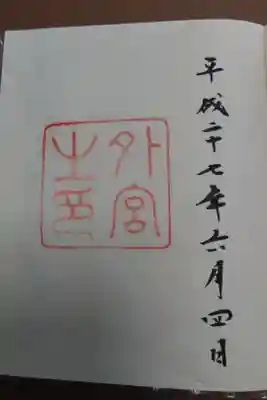 平成二十七年六月四日
外宮
之印